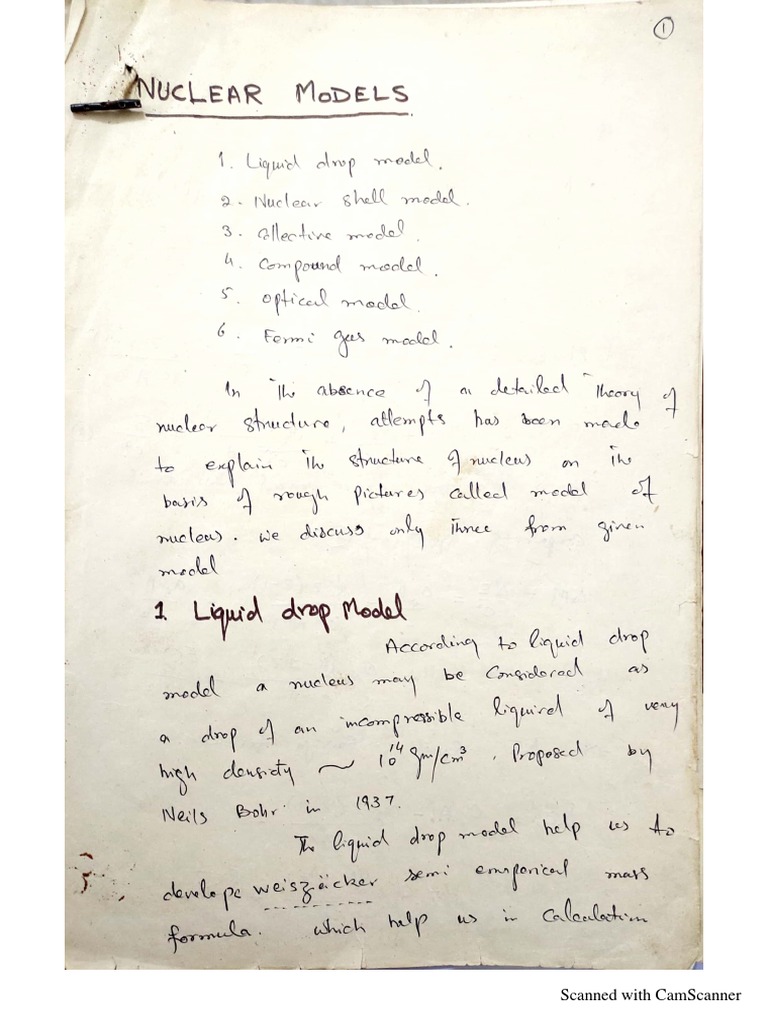 1
NUCLEAR MODELS
1. Liquid drop model.
2. Nuclear shell model.
3. Collective model.
4. Compound model.
5. Optical model.
6. Fermi gas model.
In The absence of a detailed Theory of
nuclear structure, attempts has been made
to explain The structure of nucleus on The
basis of rough pictures called model of
nucleus. we discuss only Three from given
model
1. Liquid drop Model
According to liquid drop
model a nucleus may be Considered as
a drop of an incompressible liquired of very
high densidty ~ 10¹⁴ gm/cm³. Proposed by
Neils Bohr in 1937.
The liquid drop model help us to
develope weiszäcker semi emperical mass
formula. which help us in Calculation
Scanned with CamScanner